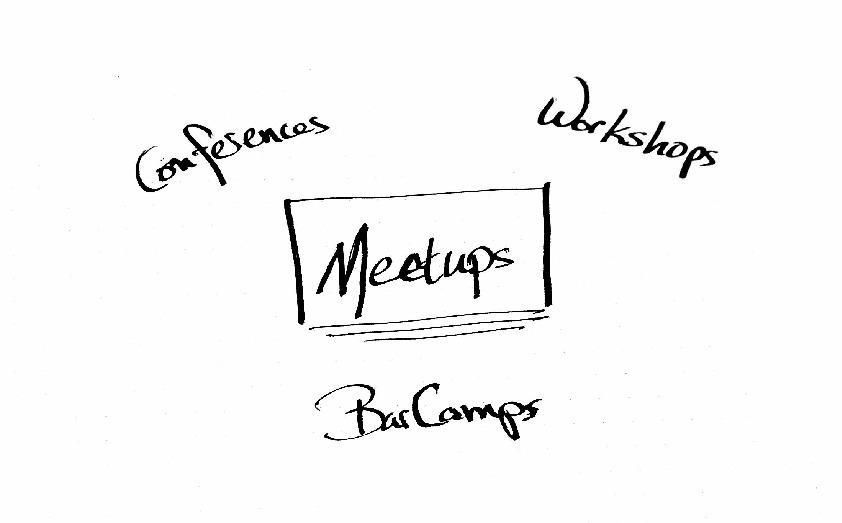 Conferences
Workshops
Meetups
BarCamps